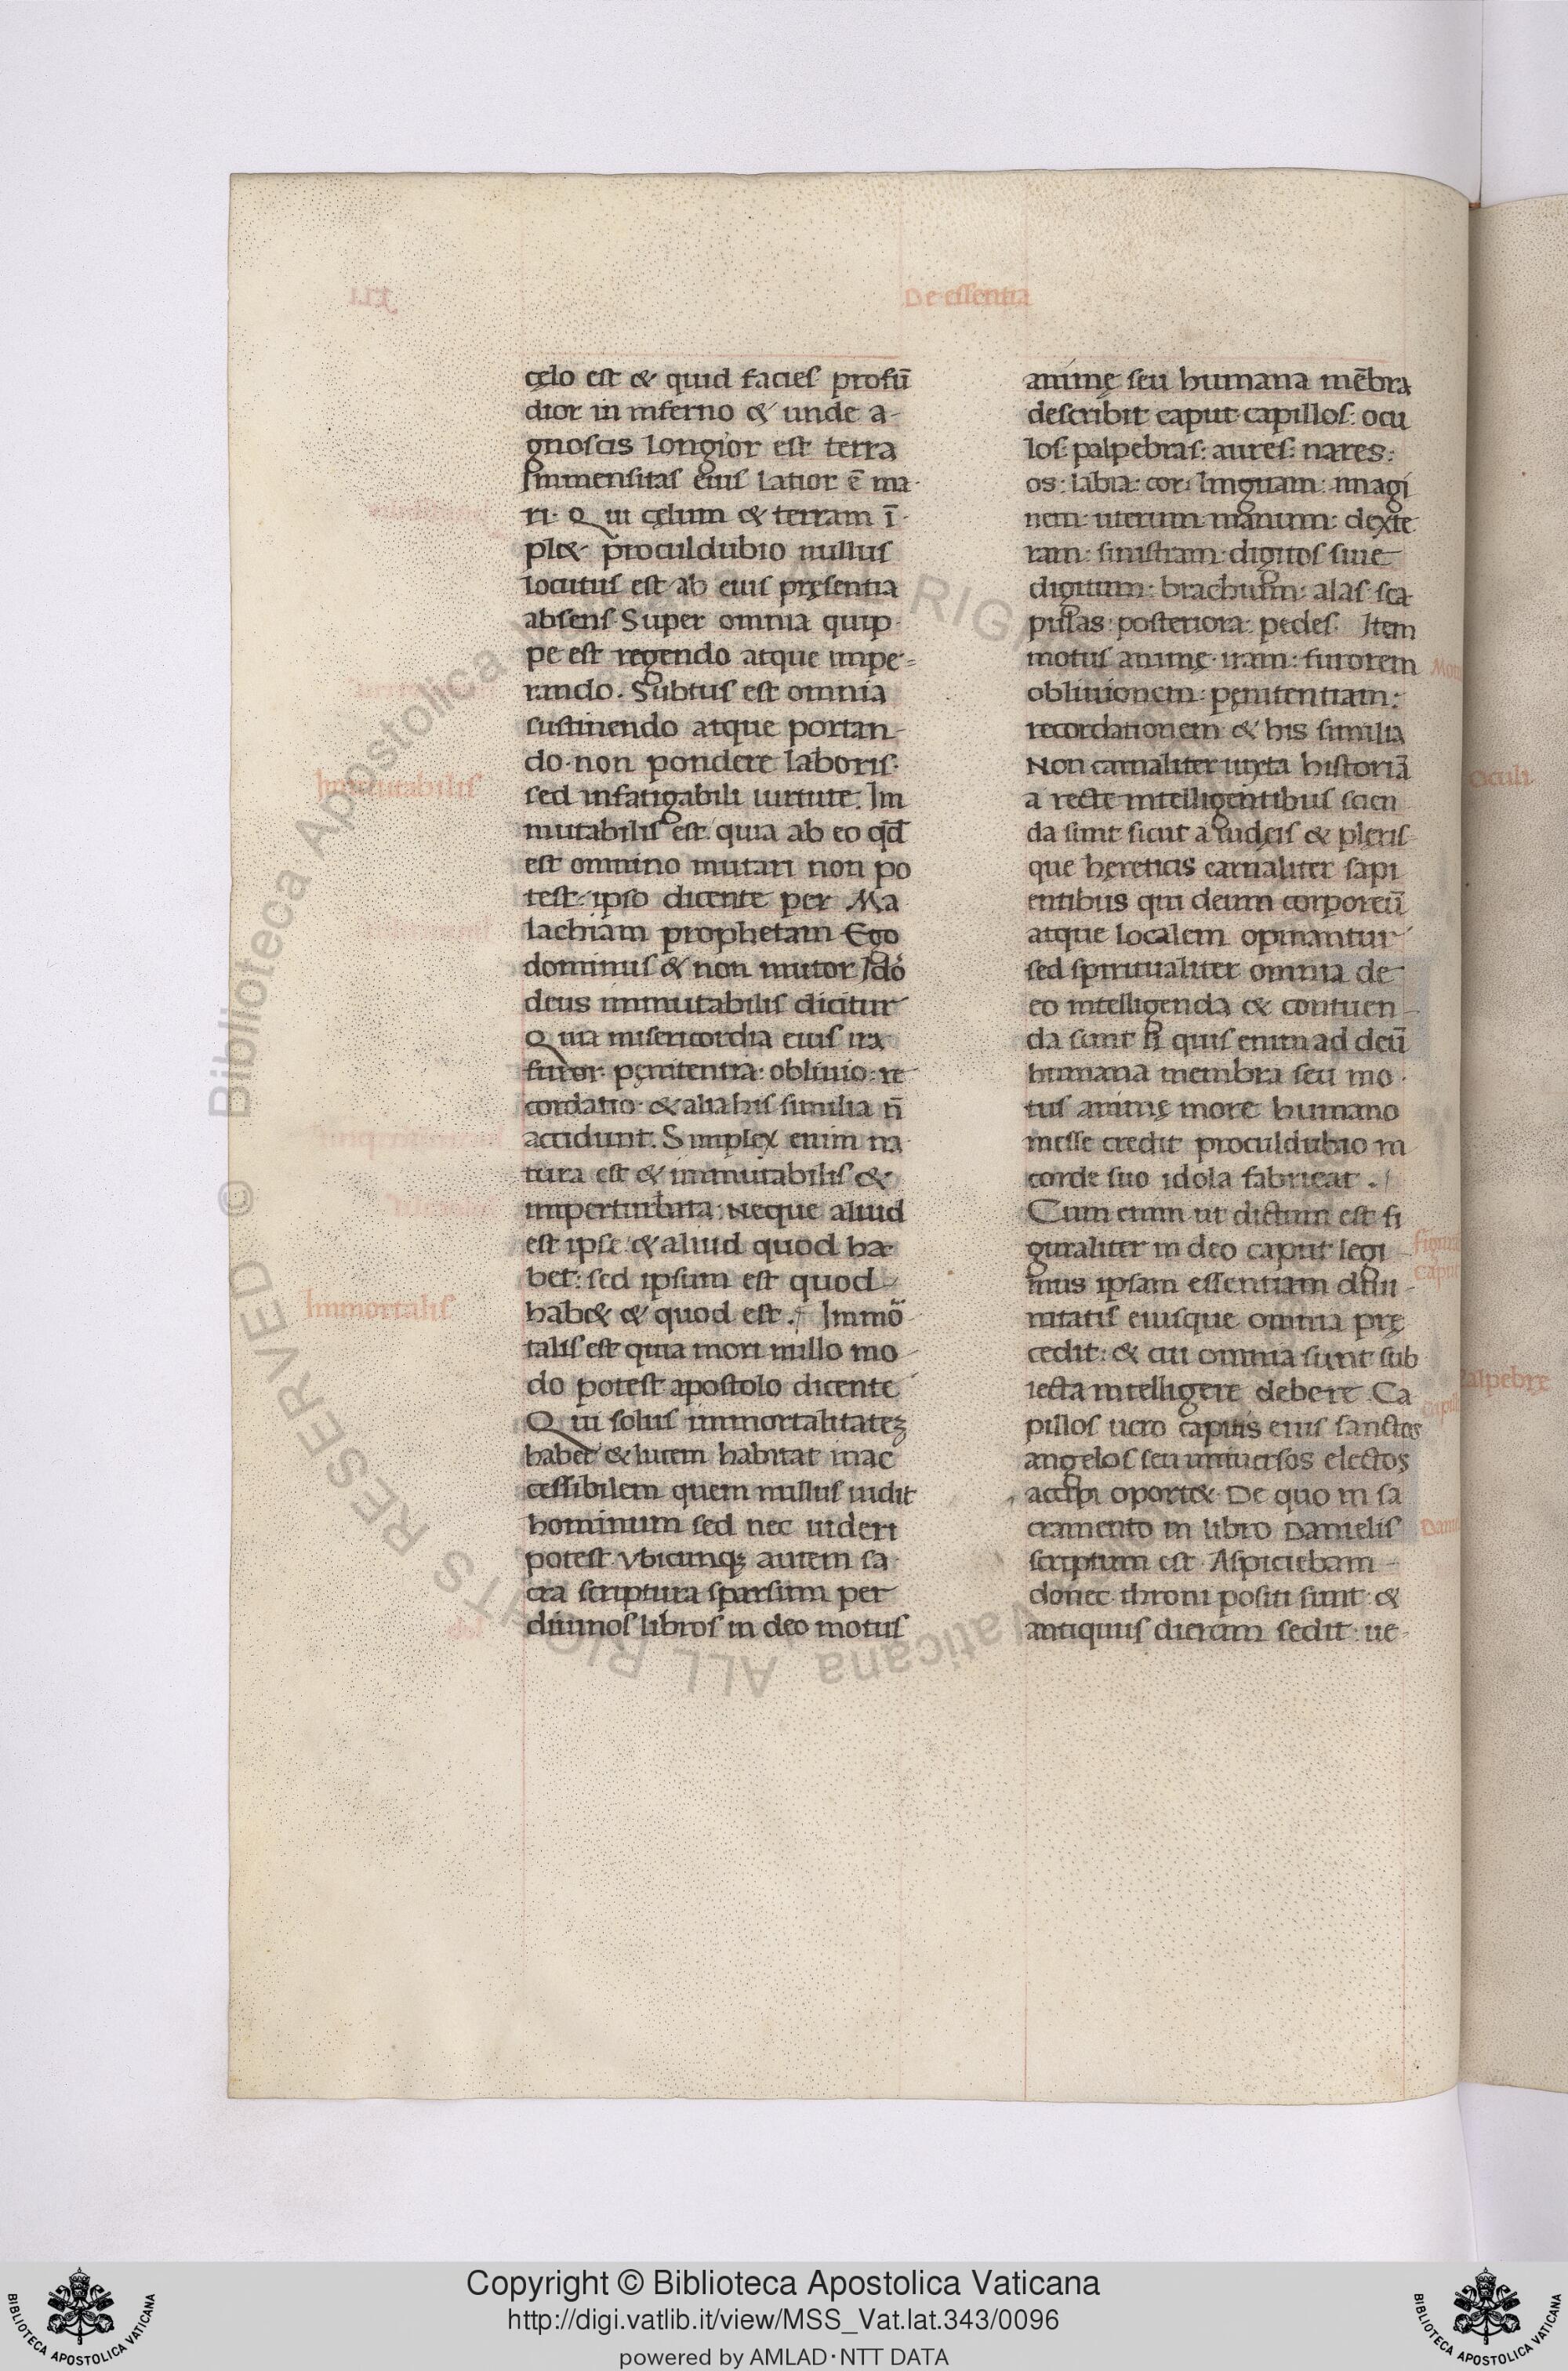 De essentia
cęlo est & quid facies profū
dior in inferno & unde a-
gnoscis longior est terra
Immensitas eius latior ē ma-
ri. Qui cęlum & terram ī-
pl& proculdubio nullus
locutus est ab eius pręsentia
absens. Super omnia quip-
pe est regendo atque impe-
rando. Subtus est omnia
sustinendo atque portan-
do. non pondere laboris.
Immutabilis
sed infatigabili uirtute. Im
mutabilis est. quia ab eo qđ
est omnino mutari non po
test. ipso dicente per Ma
lachiam prophetam Ego
dominus & non mutor Idō
deus immutabilis dicitur
Quia misericordia eius ira
furor. pęnitentia: obliuio: re
cordatio. & alia his similia n̄
accidunt. Simplex enim na
tura est & immutabilis &
imperturbata. Neque aliud
est ipse. & aliud quod ha
bet: sed ipsum est quod
Immortalis
hab& & quod est. Immō
talis est quia mori nullo mo
do potest apostolo dicente
Qui solus immortalitatez
habet & lucem habitat inac
cessibilem quem nullus uidit
hominum sed nec uideri
potest. Vbicunqꝫ autem sa
cra scriptura sparsim per
diuinos libros in deo motus
animę seu humana mēbra
describit caput. capillos: ocu
los: palpebras: aures: nares:
os: labia: cor: linguam: imagi
nem: uterum: manum: dexte
ram: sinistram: digitos siue
digitum: brachium: alas: sca
pulas: posteriora: pedes. Item
motus animę. iram: furorem
obliuionem: pęnitentiam:
recordationem & his similia
Non carnaliter iuxta historiā
a recte intelligentibus scien
da sunt sicut a iudęis & pleris-
que hęreticis carnaliter sapi
entibus qui deum corporeū
atque localem opinantur
sed spiritualiter omnia de
eo intelligenda & contuen-
da sunt Si quis enim ad deū
humana membra seu mo-
tus animę more humano
inesse credit proculdubio in
corde suo idola fabricat.
Cum enim ut dictum est fi
guraliter in deo caput legi-
mus ipsam essentiam diui-
nitatis eiusque omnia prę
cedit: & cui omnia sunt sub
iecta intelligere debere. Ca
pillos uero capitis eius sanctos
angelos seu uniuersos electos
accipi oport& De quo in sa
cramento in libro Danielis
scriptum est. Aspiciebam
donec throni positi sunt: &
antiquus dierum sedit: ue-
Oculi
Copyright © Biblioteca Apostolica Vaticana
http://digi.vatlib.it/view/MSS_Vat.lat.343/0096
powered by AMLAD·NTT DATA
BIBLIOTECA APOSTOLICA VATICANA
BIBLIOTECA APOSTOLICA VATICANA
© Biblioteca Apostolica Vaticana ALL RIGHTS RESERVED